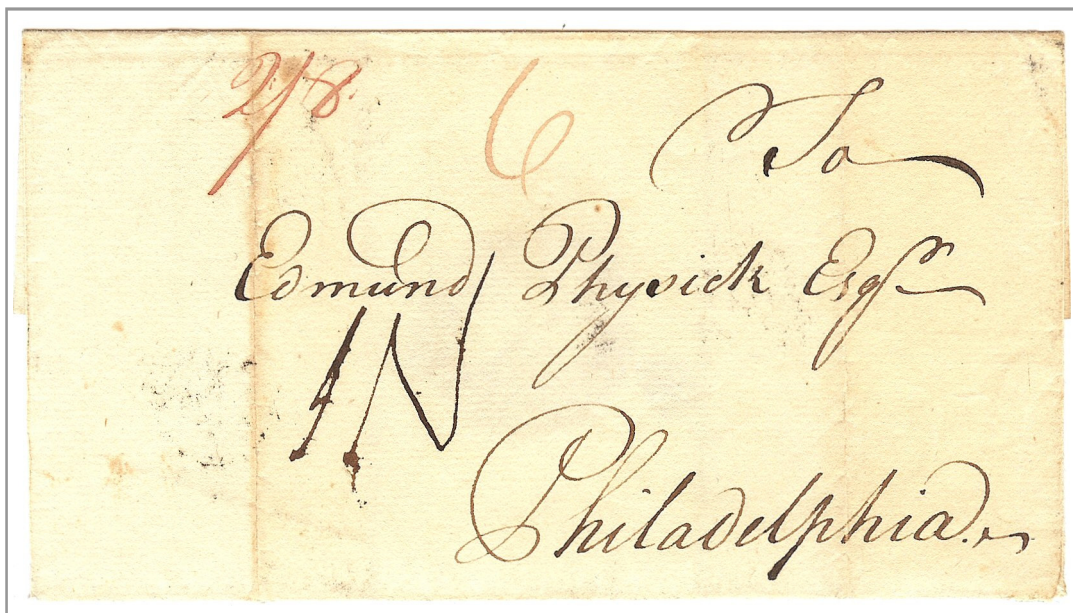 2/8 6 To
Edmund Physick Esqr
1N
Philadelphia.